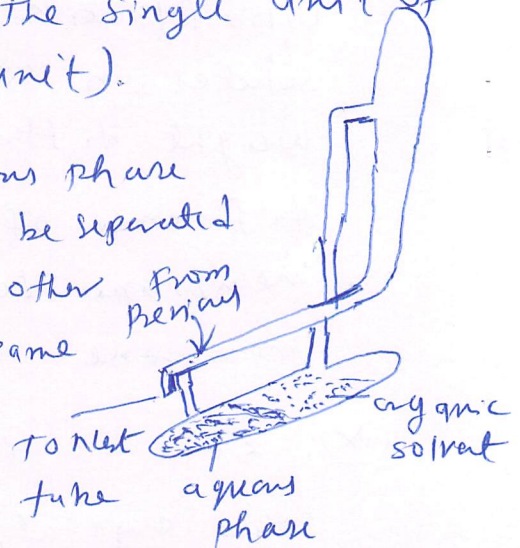 The single unit of
unit).
ns phase
be seperated
other
same
From
Previous
To Next
tube
aqueous
phase
organic
solvent